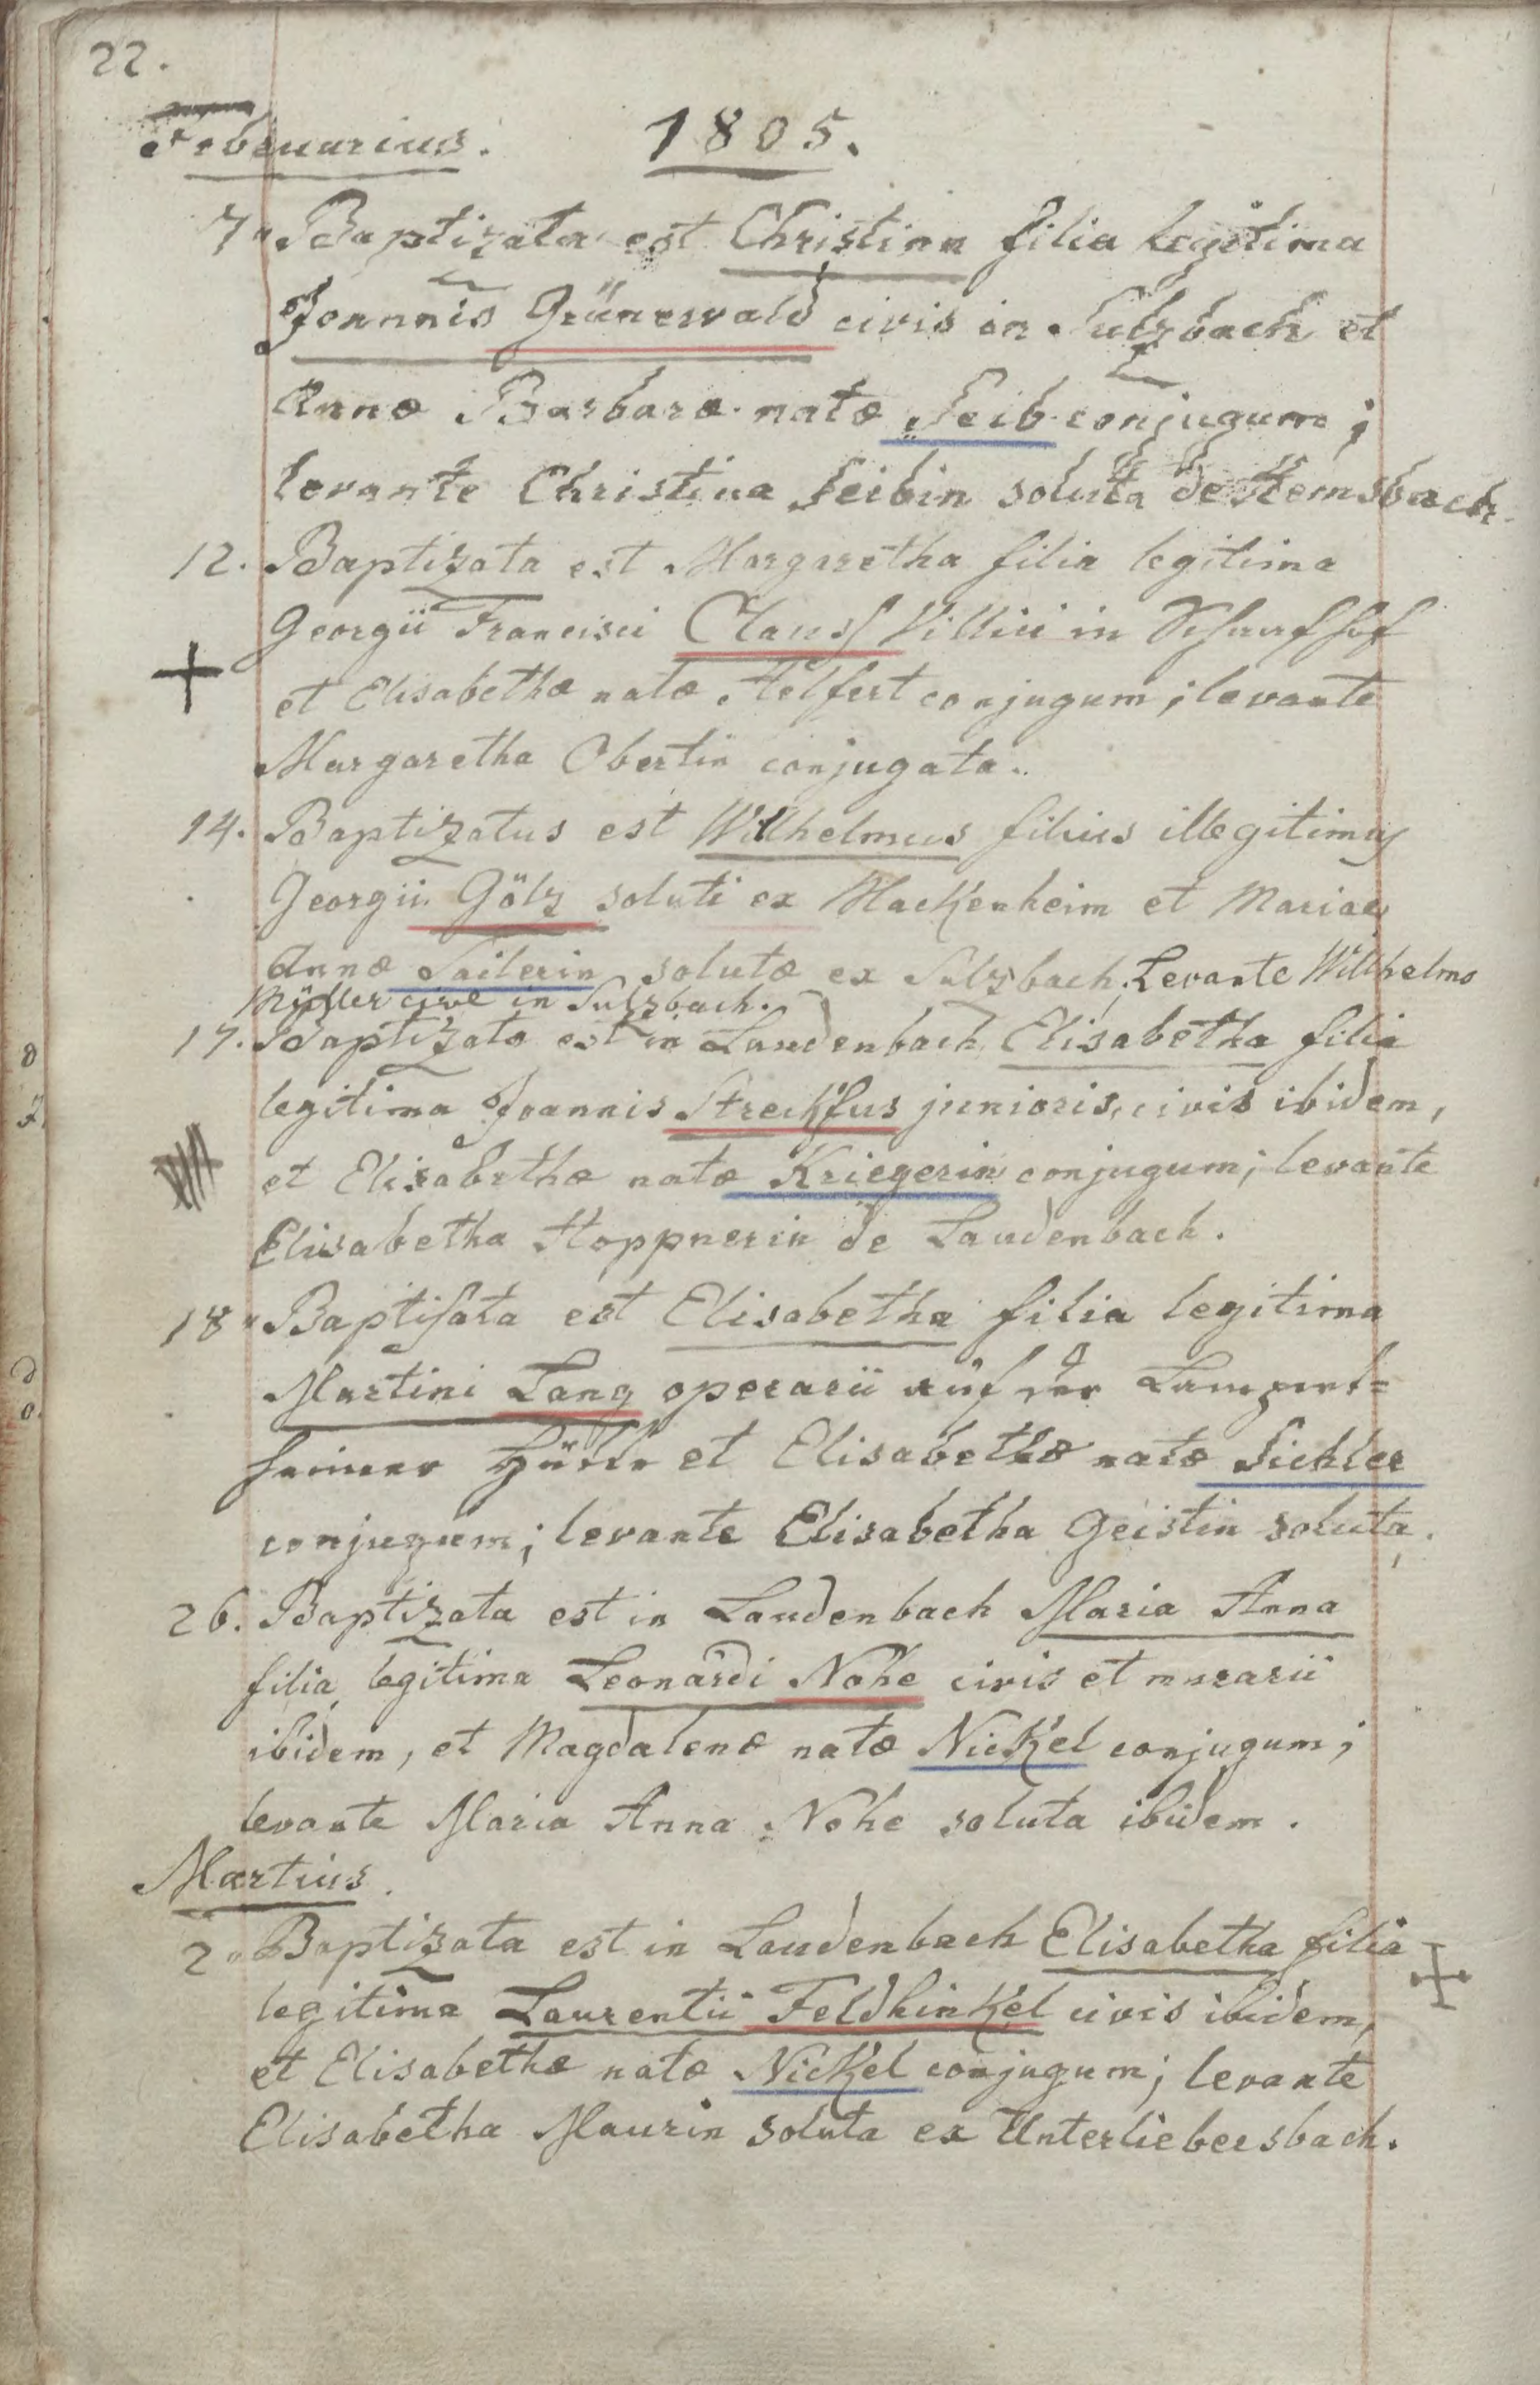 22.
Februarius. 1805.
7. Baptizata est Christina filia legitima
Joannis Grünewald civis in Sulzbach et
Annæ Barbaræ natæ Seib conjugum;
levante Christina Seibin soluta de Hemsbach
12. Baptizata est Margaretha filia legitima
Georgii Francisci Clauss Villici in Schaafhof
et Elisabethæ natæ Helfert conjugum; levante
Margaretha Obertin conjugata.
14. Baptizatus est Wilhelmus filius illegitimus
Georgii Gölz soluti ex Hackenheim et Mariæ
Annæ Sailerin solutæ ex Sulzbach. Levante Willhelmo
Müller cive in Sulzbach.
17. Baptizata est in Laudenbach Elisabetha filia
legitima Joannis Streckfus junioris, civis ibidem,
et Elisabethæ natæ Kriegerin conjugum; levante
Elisabetha Hoppnerin de Laudenbach.
18. Baptisata est Elisabetha filia legitima
Martini Lang operarii auf der Lampert=
heimer Hütte et Elisabethæ natæ Sichler
conjugum; levante Elisabetha Geistin soluta.
26. Baptizata est in Laudenbach Maria Anna
filia legitima Leonardi Nohe civis et murarii
ibidem, et Magdalenæ natæ Nickel conjugum;
levante Maria Anna Nohe soluta ibidem.
Martius.
2. Baptizata est in Laudenbach Elisabetha filia
legitima Laurentii Feldhinkel civis ibidem,
et Elisabethæ natæ Nickel conjugum; levante
Elisabetha Maurin soluta ex Unterliebersbach.